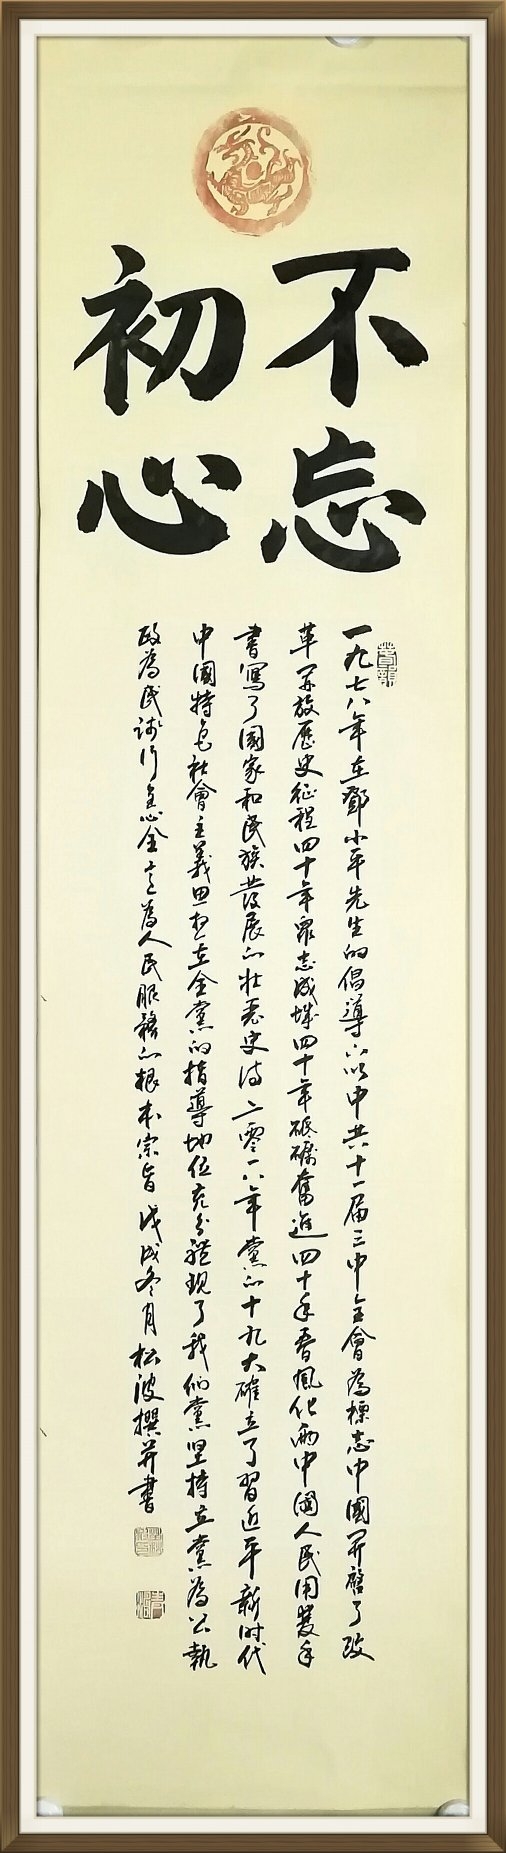 不忘
初心
一九七八年在鄧小平先生的倡導下以中共十一届三中全會為標志中國開啓了改
革開放歷史征程四十年眾志成城四十年砥礪奮進四十年春風化雨中國人民用雙手
書寫了國家和民族發展的壯麗史詩二零一八年黨的十九大確立了習近平新时代
中國特色社會主義思想在全黨的指導地位充分體現了我們黨坚持立黨為公執
政為民踐行全心全意為人民服務的根本宗旨戊戌冬月松波撰并書